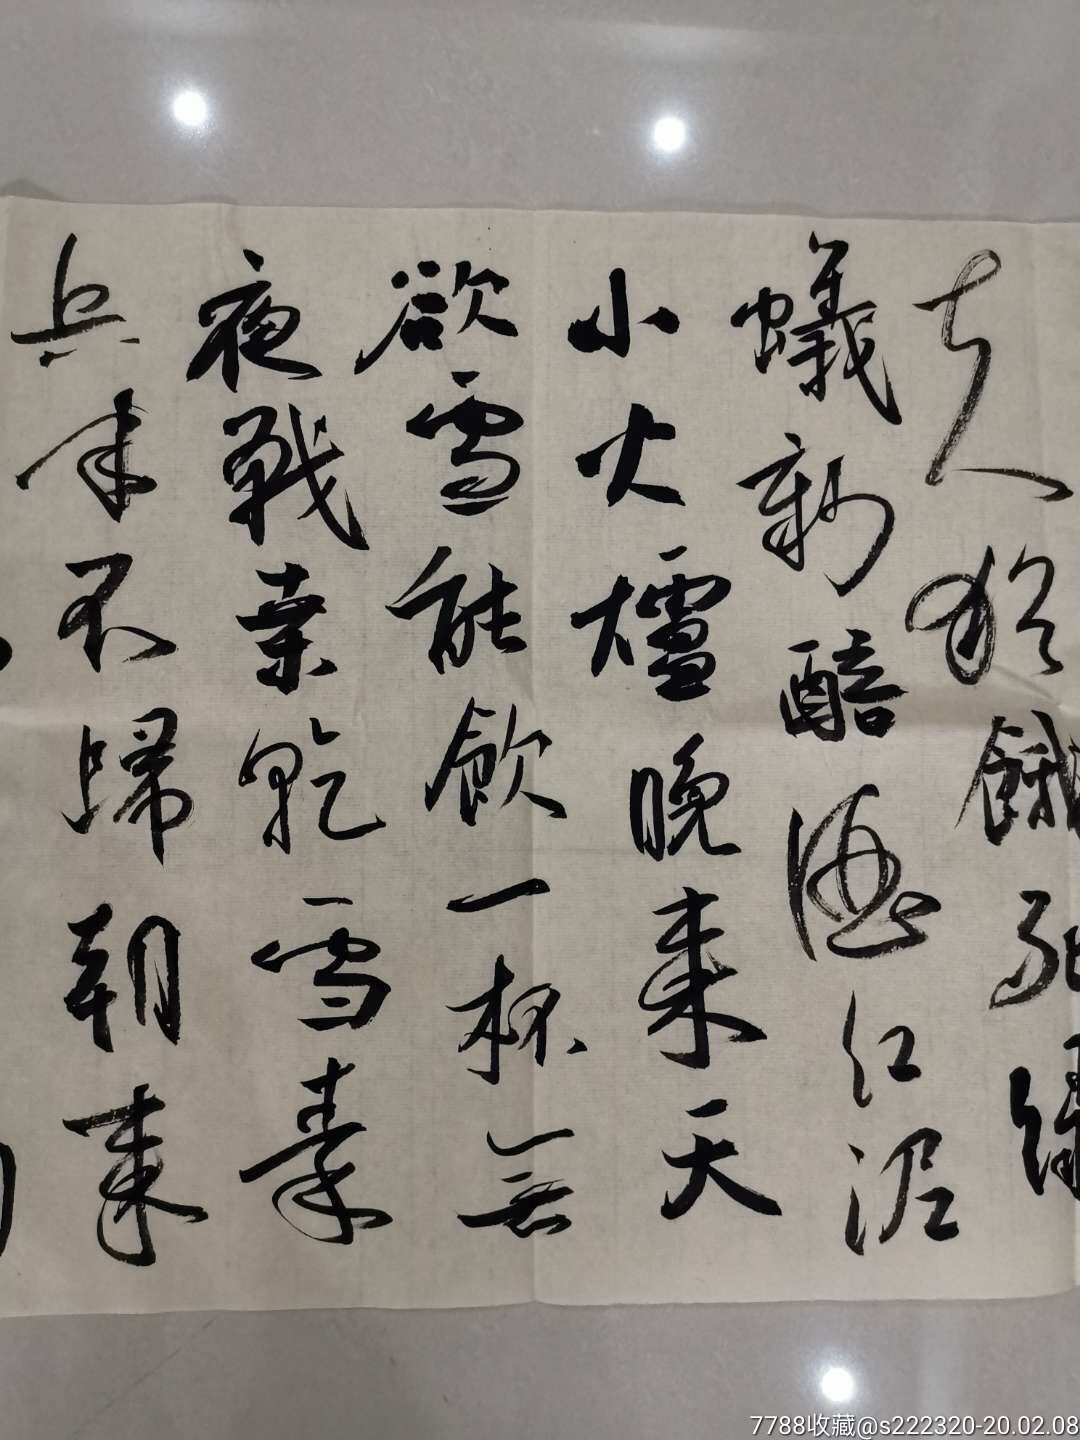 夫猶餓死綠
蟻新醅酒紅泥
小火爐晚來天
欲雪能飲一杯無
夜戰桒乾雪秦
兵半不歸朝來
7788收藏@s222320-20.02.08